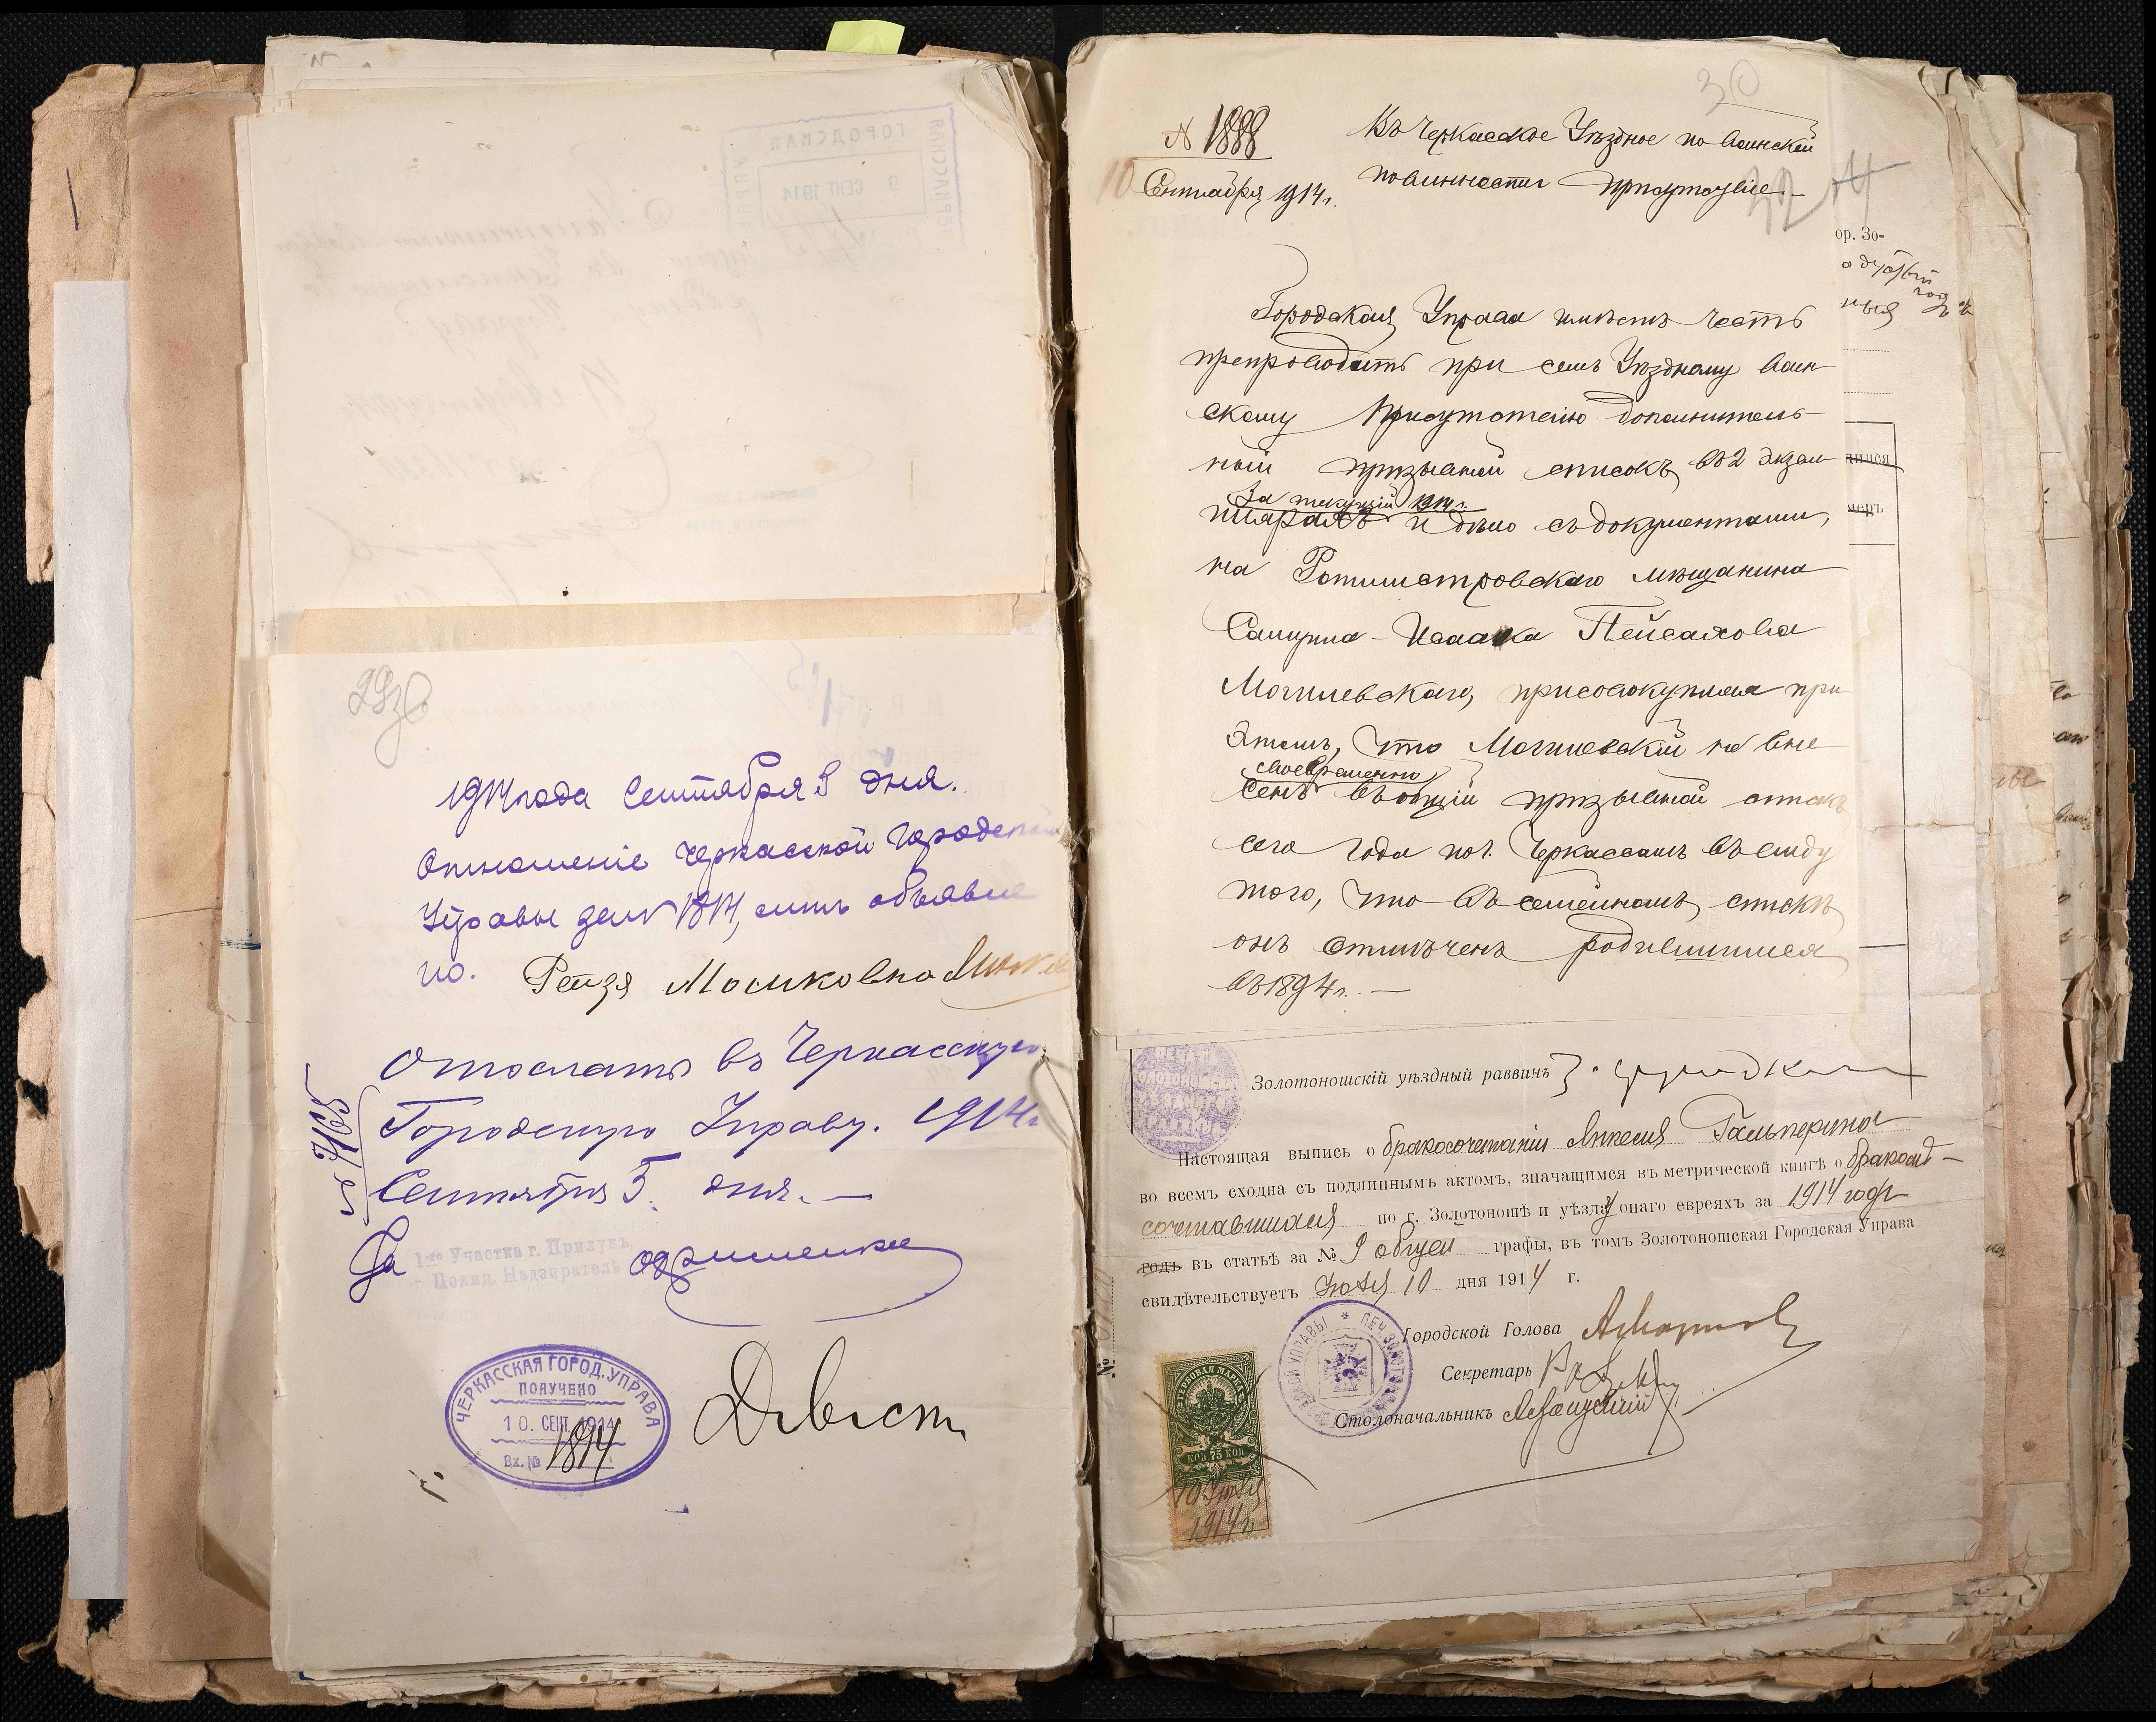 29 зв.
1914 года Сентября 5 дня.
Отношеніе Черкасской Городской
Управы за № 1814, мнѣ объявле
но. Рейзя Мошковна
Отослать въ Черкасскую
Городскую Управу. 1914 г.
Сентября 5 дня. —
№ 7165
За
1-го Участка г. Прилукъ
Полиц. Надзиратель
ЧЕРКАССКАЯ ГОРОД. УПРАВА
ПОЛУЧЕНО
10. СЕНТ. 1914
Вх. № 1814
30
N 1888
10 Сентября 1914 г.
Въ Черкасское Уѣздное по воинской
повинности присутствіе
Городская Управа имѣетъ честь
препроводить при семъ Уѣздному Воин
скому Присутствію дополнитель
ный призывной списокъ, въ 2 экзем
за текущій 1914 г.
плярахъ и дѣло съ документами,
на Ротмистровскаго мѣщанина
Самуила-Исаака Пейсахова
Могилевскаго, присовокупляя при
этомъ, что Могилевскій не вне
своевременно
сенъ въ общій призывной списокъ
сего года по г. Черкассамъ въ виду
того, что въ семейномъ спискѣ
онъ отмѣченъ родившимся
въ 1894 г. —
ор. Зо-
ныя
дился
меръ
Золотоношскій уѣздный раввинъ
Настоящая выпись о бракосочетаніи Гальперина
во всемъ сходна съ подлиннымъ актомъ, значащимся въ метрической книгѣ о бракосо-
четавшихся по г. Золотоношѣ и уѣзду онаго евреяхъ за 1914 годъ
годъ въ статьѣ за № 9 общей графы, въ томъ Золотоношская Городская Управа
свидѣтельствуетъ Іюля 10 дня 1914 г.
Городской Голова
Секретарь
Столоначальникъ
ГЕРБОВАЯ МАРКА
КОП. 75 КОП.
10 Іюля
1914 г.